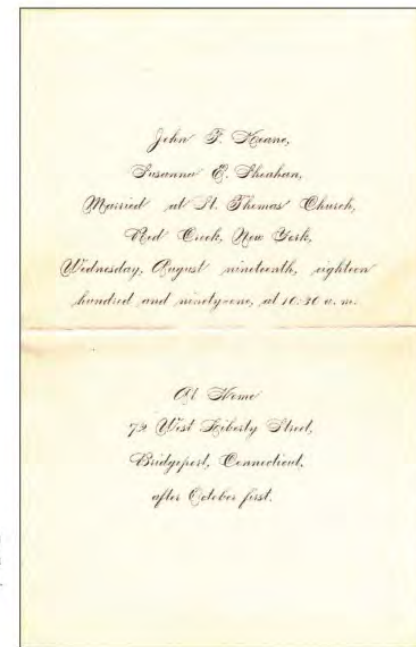 John F. Keane,
Susanna E. Sheahan,
Married at St. Thomas Church,
Red Creek, New York,
Wednesday, August nineteenth, eighteen
hundred and ninety-one, at 10:30 a. m.
At Home
72 West Liberty Street,
Bridgeport, Connecticut,
after October first.